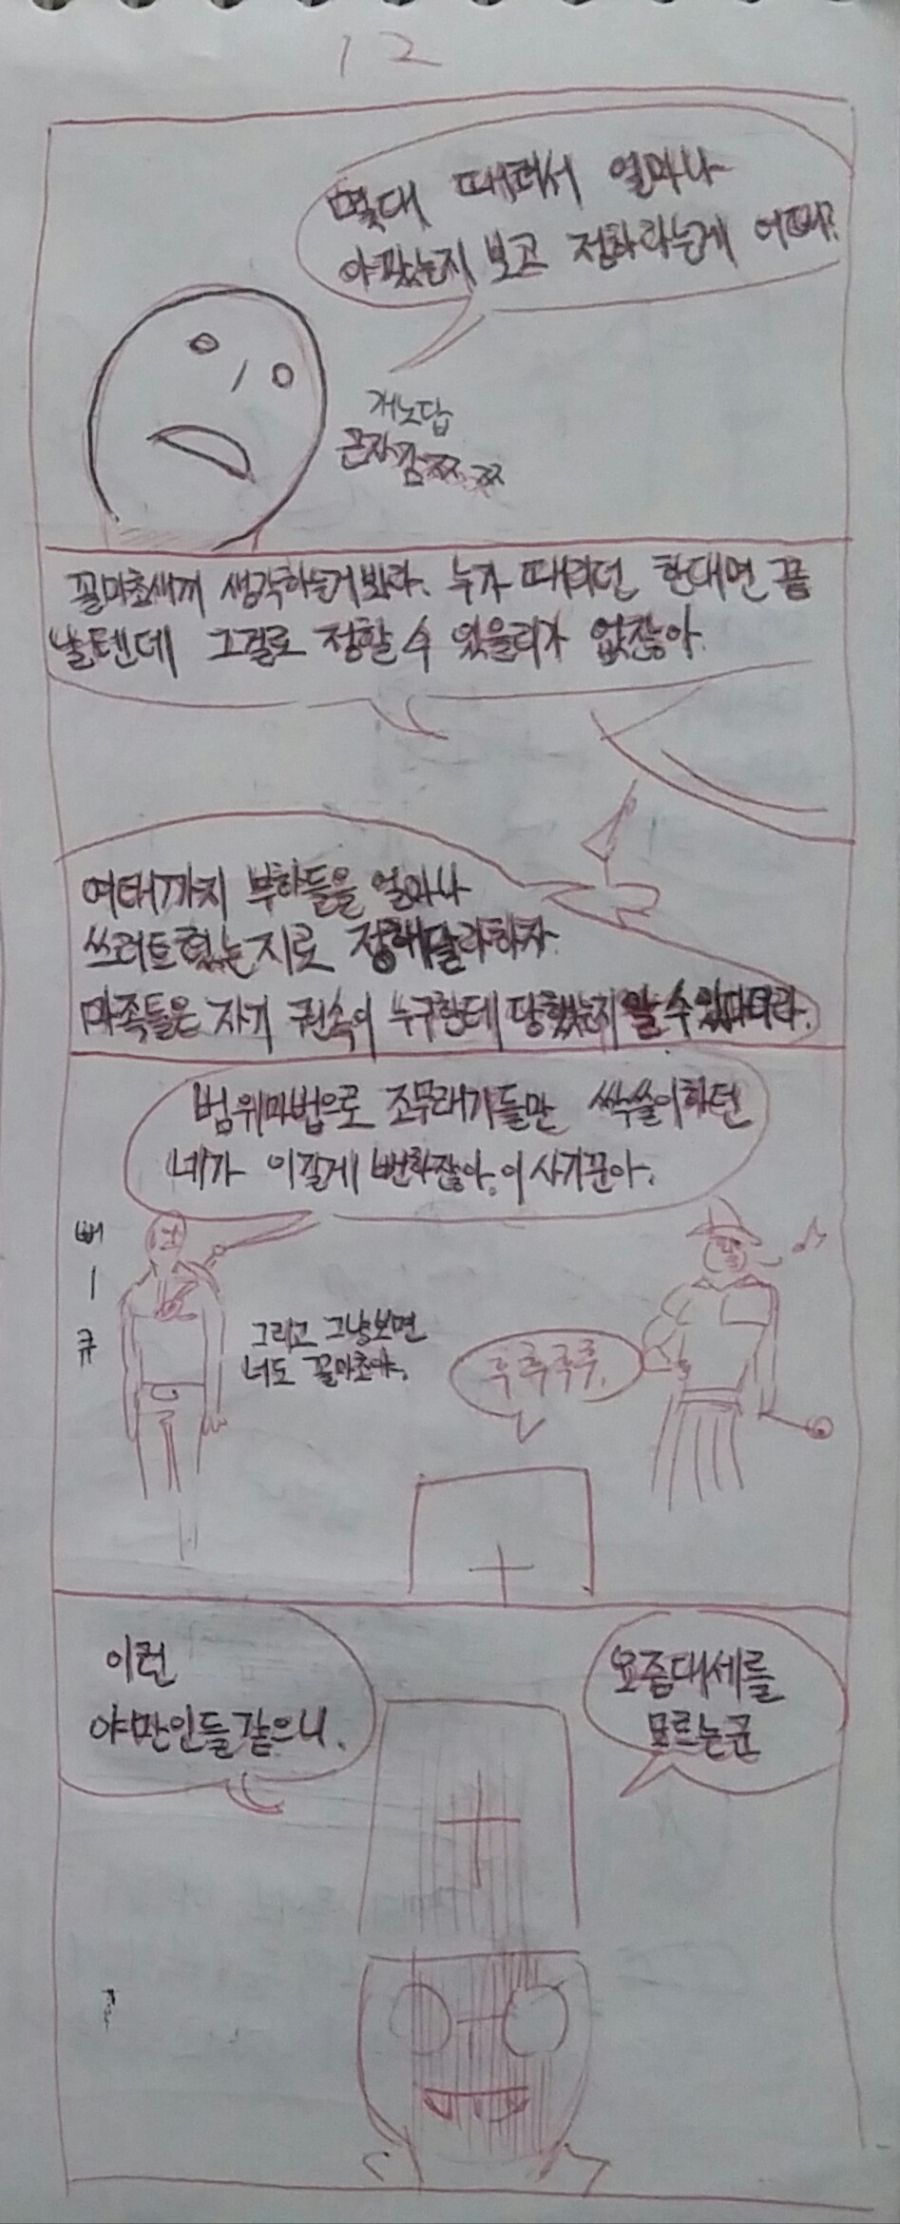 12
몇대 때려서 얼마나
아팠는지 보고 정하라는게 어때?
개노답
근자감 ㅉㅉ
꼴마초새끼 생각하는거 봐라. 누가 때리던 한대면 끝
날텐데 그걸로 정할 수 있을리가 없잖아.
여태까지 부하들을 얼마나
쓰러트렸는지로 정해달라하자
마족들은 자기 권속이 누구한테 당했는지 알 수 있다더라.
범위마법으로 조무래기들만 싹쓸이하던
네가 이길게 뻔하잖아. 이 사기꾼아.
뻐
ㅣ
큐
그리고 그냥보면
너도 꼴마초야.
후후후후.
이런
야만인들같으니.
요즘대세를
모르는군